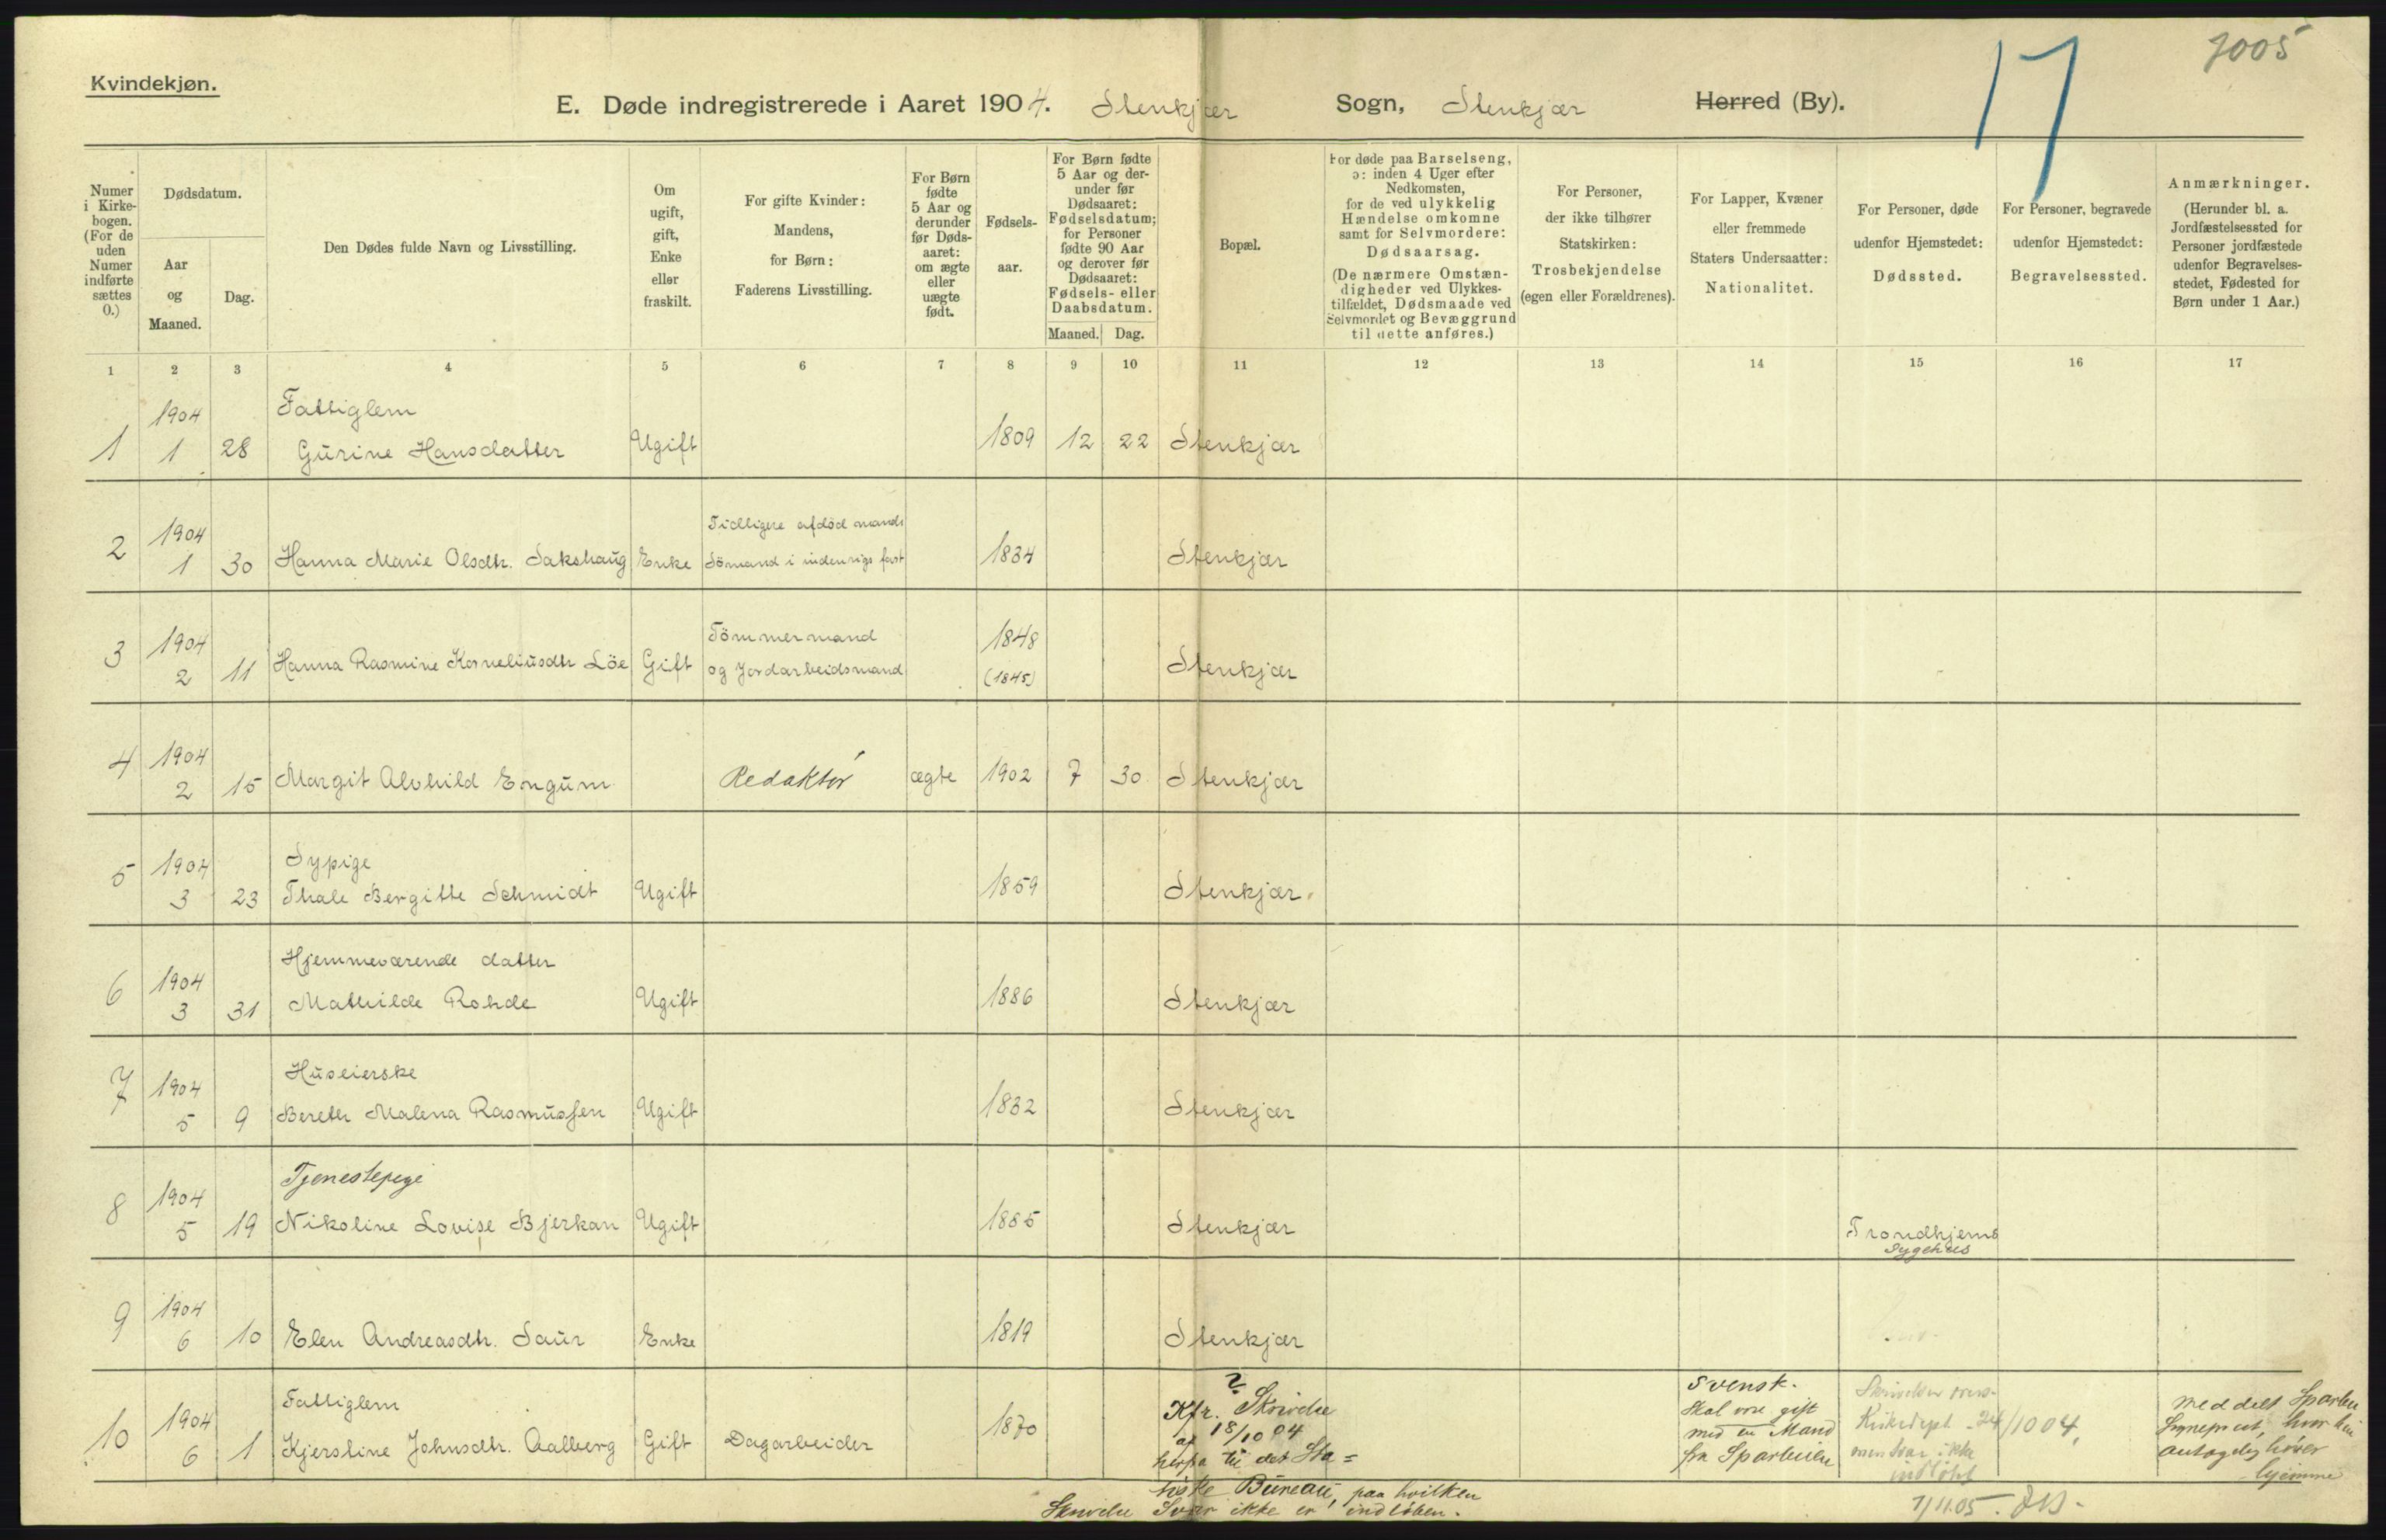 7005
17
Kvindekjøn.
E. Døde indregistrerede i Aaret 1904. Stenkjær Sogn, Stenkjær Herred (By).
Numer i Kirke-bogen. (For de uden Numer indførte sættes 0.)
Dødsdatum.
Aar og Maaned.
Dag.
Den Dødes fulde Navn og Livsstilling.
Om ugift, gift, Enke eller fraskilt.
For gifte Kvinder: Mandens, for Børn: Faderens Livsstilling.
For Børn fødte 5 Aar og derunder før Døds-aaret: om ægte eller uægte født.
Fødsels-aar.
For Børn fødte 5 Aar og der-under før Dødsaaret: Fødselsdatum; for Personer fødte 90 Aar og derover før Dødsaaret: Fødsels- eller Daabsdatum.
Maaned. Dag.
Bopæl.
For døde paa Barselseng, ɔ: inden 4 Uger efter Nedkomsten, for de ved ulykkelig Hændelse omkomne samt for Selvmordere: Dødsaarsag. (De nærmere Omstæn-digheder ved Ulykkes-tilfældet, Dødsmaade ved Selvmordet og Bevæggrund til dette anføres.)
For Personer, der ikke tilhører Statskirken: Trosbekjendelse (egen eller Forældrenes).
For Lapper, Kvæner eller fremmede Staters Undersaatter: Nationalitet.
For Personer, døde udenfor Hjemstedet: Dødssted.
For Personer, begravede udenfor Hjemstedet: Begravelsessted.
Anmærkninger. (Herunder bl. a. Jordfæstelsessted for Personer jordfæstede udenfor Begravelses-stedet, Fødested for Børn under 1 Aar.)
1 2 3 4 5 6 7 8 9 10 11 12 13 14 15 16 17
1904 Fattiglem
1 1 28 Gurine Hansdatter Ugift 1809 12 22 Stenkjær
1904 Tidligere afdød mands
2 1 30 Hanna Marie Olsdtr. Sakshaug Enke Sömand i indenrigs fart 1834 Stenkjær
1904 Tömmermand 1848
3 2 11 Hanna Rasmine Korneliusdtr Löe Gift og Jordarbeidsmand (1845) Stenkjær
1904
4 2 15 Margit Alvhild Engum Redaktör ægte 1902 7 30 Stenkjær
1904 Sypige
5 3 23 Thale Bergitte Schmidt Ugift 1859 Stenkjær
1904 Hjemmeværende datter
6 3 31 Mathilde Rohde Ugift 1886 Stenkjær
1904 Huseierske
7 5 9 Bereth Malena Rasmussen Ugift 1832 Stenkjær
1904 Tjenestepige
8 5 19 Nikoline Lovise Bjerkan Ugift 1885 Stenkjær Trondhjems
Sygehus
1904
9 6 10 Elen Andreasdtr. Saur Enke 1819 Stenkjær
1904 Fattiglem
10 6 1 Kjerstine Johnsdtr. Aalberg Gift Dagarbeider 1870
?
Kfr. Skrivelse
af 18/10 04
herfra til det Sta=
tiske Bureau, paa hvilken
Skrivelse Svar ikke er indløben.
Svensk.
Skal være gift
med en Mand
fra Sparbuen
24/10 04,
men svar ikke
indløbet
Meddelt Sparbu
Sognepræst, hvor hun
antagelig hører
hjemme
7/11.05.